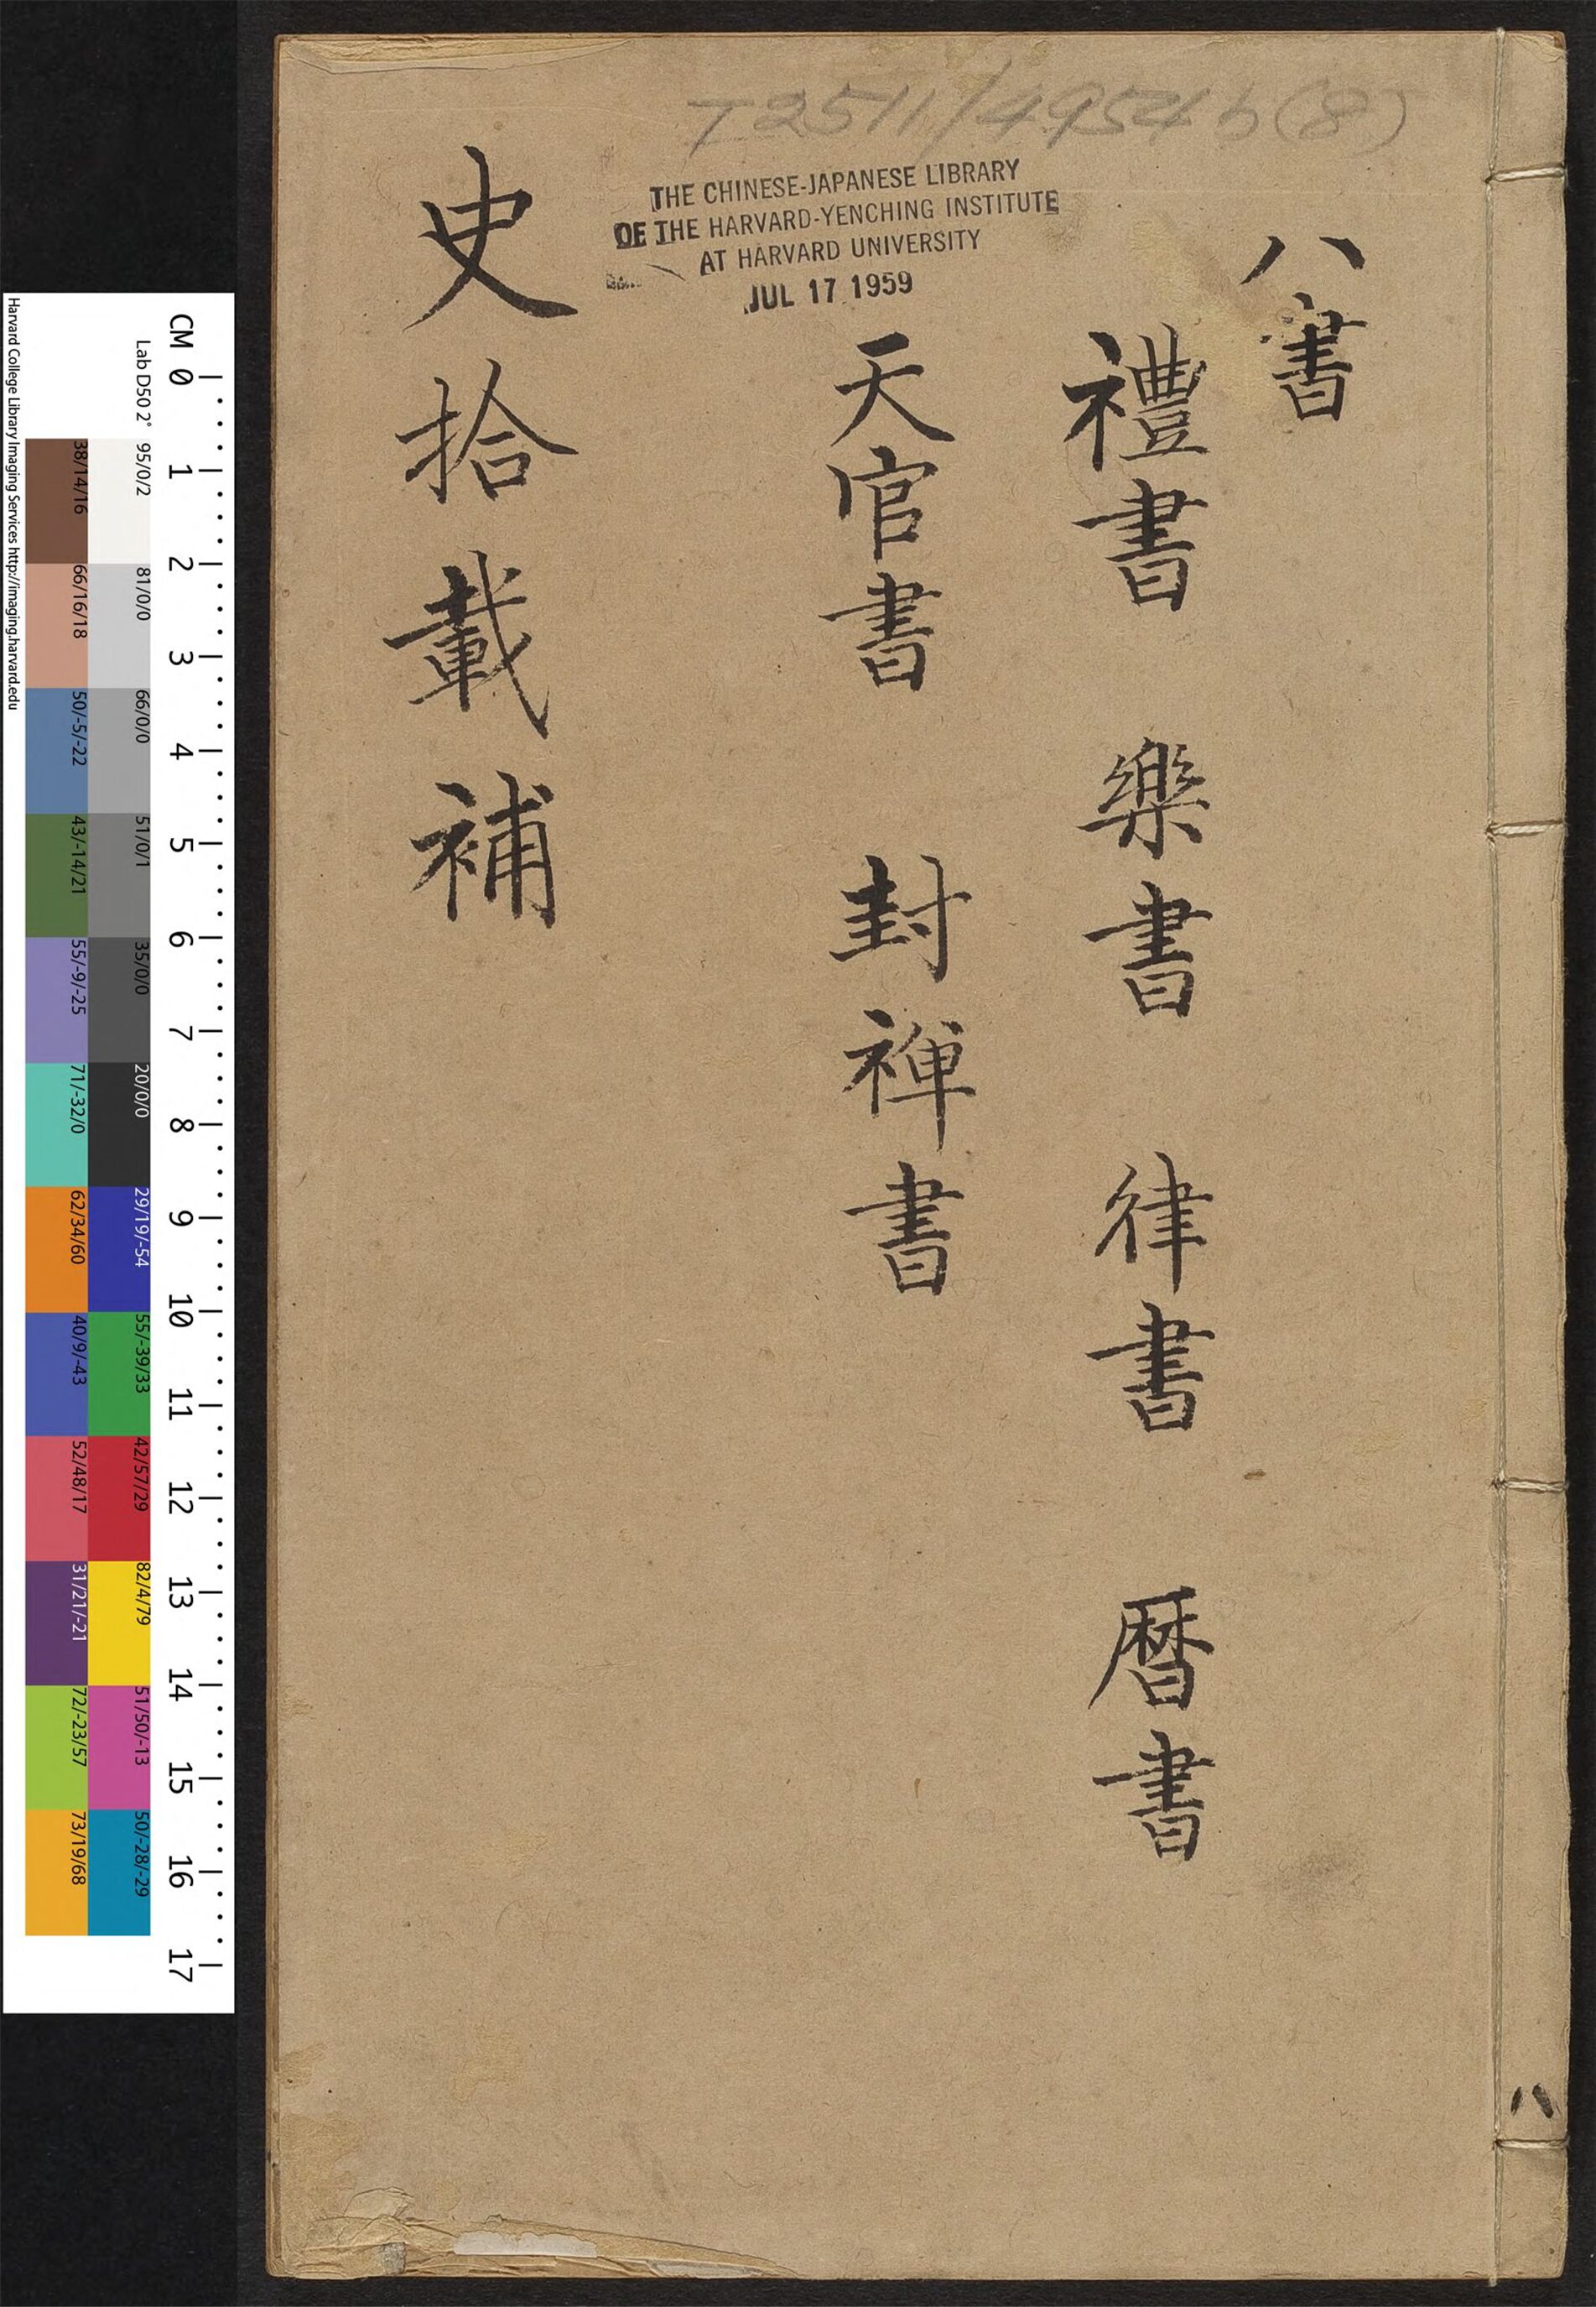 T2511/4954b(8)
THE CHINESE-JAPANESE LIBRARY
OF THE HARVARD-YENCHING INSTITUTE
AT HARVARD UNIVERSITY
JUL 17 1959
八書
禮書 樂書 律書 暦書
天官書 封禅書
史拾載補
八
CM 0 1 2 3 4 5 6 7 8 9 10 11 12 13 14 15 16 17
Lab D50 2° 95/0/2 81/0/0 66/0/0 51/0/1 35/0/0 20/0/0 29/19/-54 55/-39/33 42/57/29 82/4/79 51/50/-13 50/-28/-29
38/14/16 66/16/18 50/-5/-22 43/-14/21 55/-9/-25 71/-32/0 62/34/60 40/9/-43 52/48/17 31/21/-21 72/-23/57 73/19/68
Harvard College Library Imaging Services http://imaging.harvard.edu